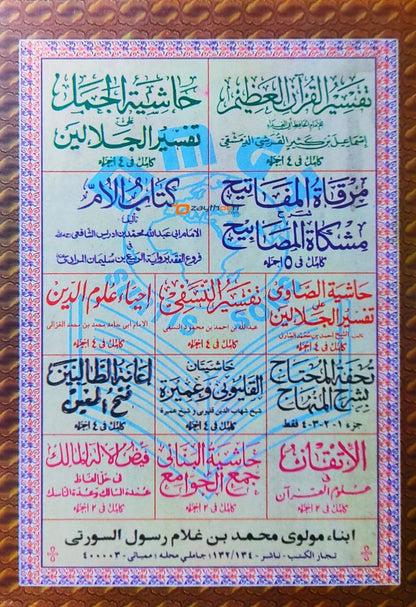 تفسير القرآن العظيم
للامام الحافظ أبى الفداء
اسماعيل بن كثير القرشى الدمشقى
كامل فى ٤ اجزاء
حاشية الجمل
على
تفسير الجلالين
كامل فى ٤ اجزاء
مرقاة المفاتيح
شرح
مشكاة المصابيح
كامل فى ٥ اجزاء
كتاب الأم
تأليف
الامام ابى عبد الله محمد بن ادريس الشافعى
فى
فروع الفقه برواية الربيع بن سليمان المرادى
azaytha
حاشية الصاوى
على
تفسير الجلالين
كامل فى ٤ اجزاء
تفسير النسفى
عبد الله بن احمد بن محمود النسفى
كامل فى ٤ اجزاء
احياء علوم الدين
الامام أبى حامد محمد بن محمد الغزالى
كامل فى ٤ اجزاء
تحفة المحتاج
بشرح المنهاج
جزء ١-٢-٣-٤ فقط
حاشيتان
القليوبى وعميرة
شيخ شهاب الدين قليوبى وشيخ عميرة
كامل فى ٤ اجزاء
اعانة الطالبين
فتح المعين
كامل فى ٤ اجزاء
الاتقان
فى
علوم القرآن
كامل فى ٢ اجزاء
حاشية البنانى
جمع الجوامع
كامل فى ٢ اجزاء
فيض الاله المالك
فى حل الفاظ
عمدة السالك وعدة الناسك
كامل فى ٢ اجزاء
ابناء مولوى محمد بن غلام رسول السورتى
تجار الكتب - ناشر - ١٣٢/١٣٤؛ جاملى محله؛ ممبائى - ٤٠٠٠٠٣